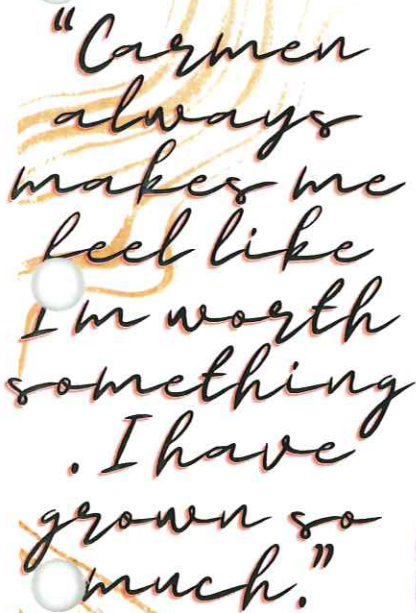 “Carmen
always
makes me
feel like
I'm worth
something
. I have
grown so
much.”